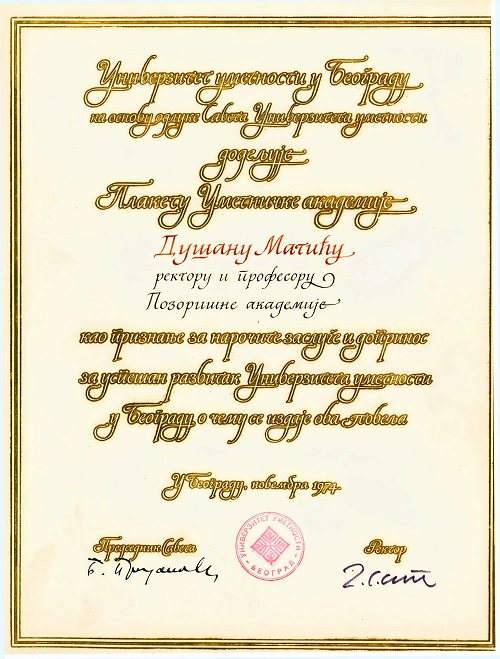 Универзитет уметности у Београду
на основу одлуке Савета Универзитета уметности
додељује
Плакету Уметничке академије
Душану Матићу
ректору и професору
Позоришне академије
као признање за нарочите заслуге и допринос
за успешан развитак Универзитета уметности
у Београду, о чему се издаје ова повеља
У Београду, новембра 1974.
Председник Савета
Ректор
УНИВЕРЗИТЕТ УМЕТНОСТИ
БЕОГРАД